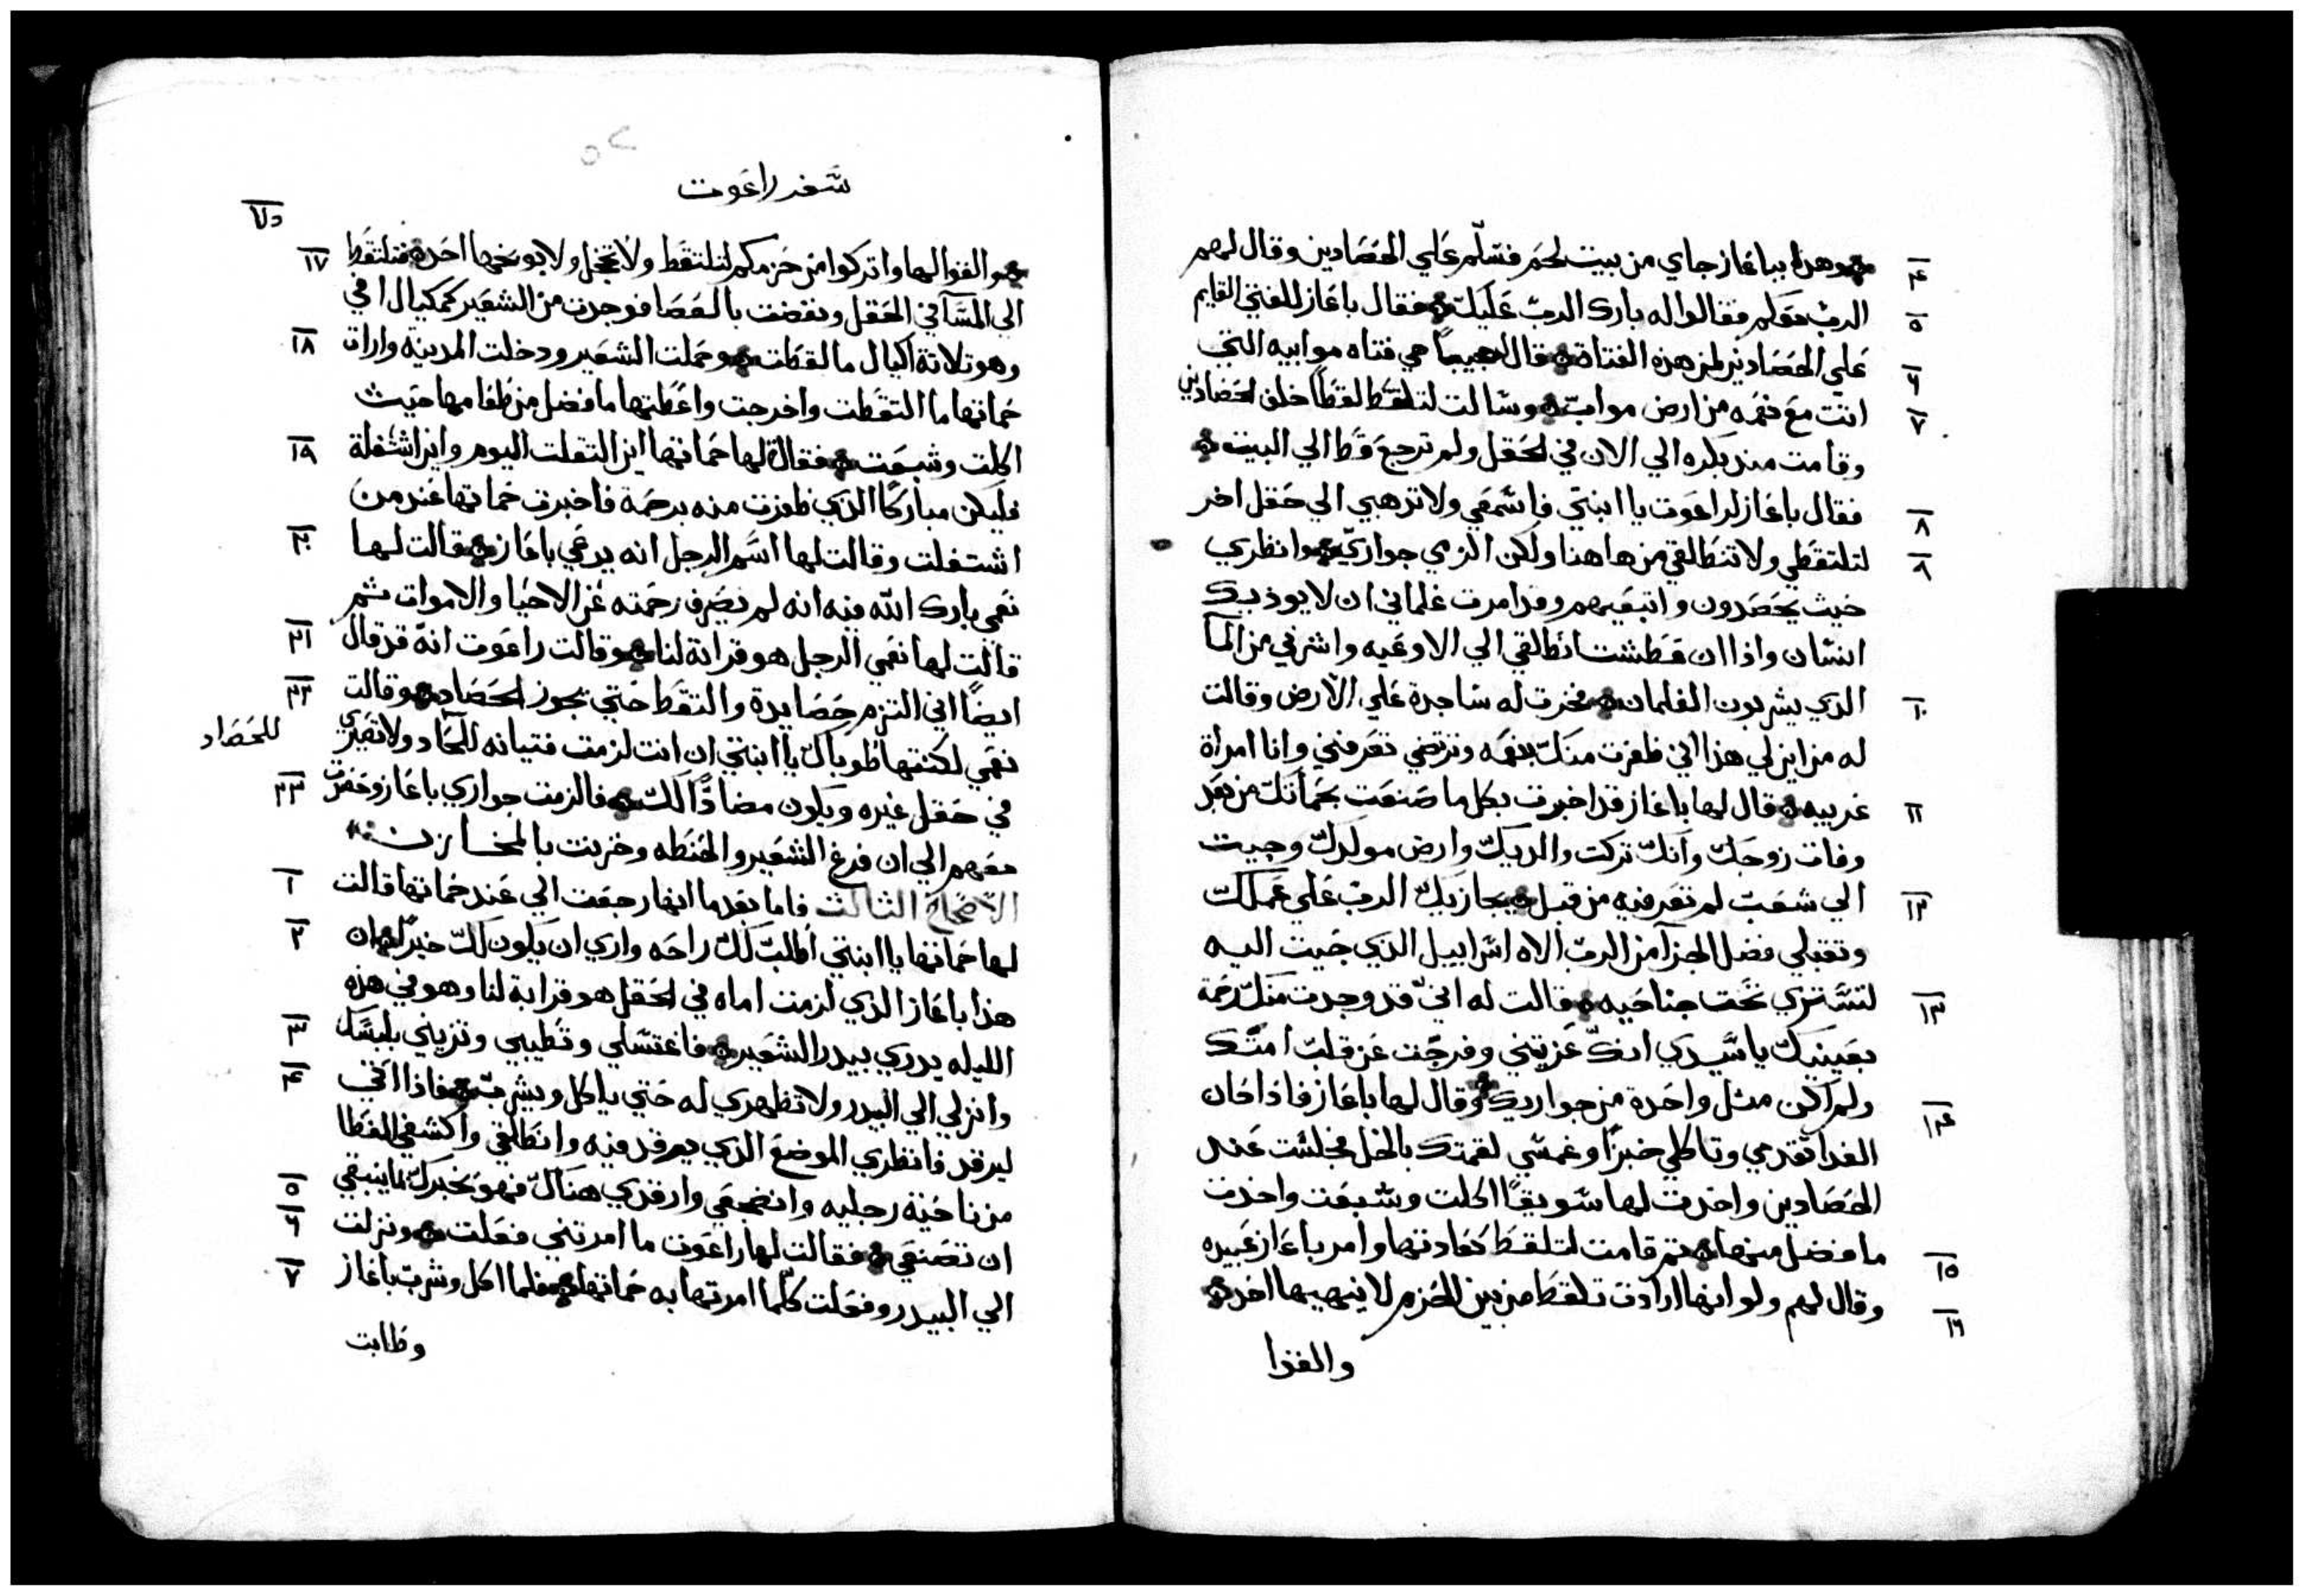 وهوذا بباغاز جاي من بيت لحم فسلم علي الحصادين وقال لهم
٤
الرب معكم فقالوا له بارك الرب عليك فقال باغاز للفتي القايم
٥
علي الحصادين لمن هذه الفتاة قال هي فتاه موابيه التي
٦
اتت مع نعمه من ارض مواب وسالت لتلتقط لقطا خلف الحصادين
٧
وقامت منذ بكره الي الان في الحقل ولم ترجع قط الي البيت
فقال باغاز لراعوت يا ابنتي فاسمعي ولا تذهبي الي حقل اخر
٨
لتلتقطي ولا تنطالقي من هاهنا ولكن الزمي جواري وانظري
٨
حيث يحصدون واتبعيهم وقد امرت غلماني ان لا يوذيك
انسان واذا ان عطشت انطالقي الي الاوعيه واشرفي من المآ
الذي يشربون الغلمان فخرت له ساجدة علي الارض وقالت
١٠
له من اين لي هذا اني ظفرت منك بنعمه وترتضي تعرفني وانا امراة
غريبه قال لها باغاز قد اخبرت بكل ما صنعت بحماتك من بعد
١١
وفات زوجك وانك تركت والديك وارض مولدك وجيت
الي شعب لم تعرفيه من قبل يجازيك الرب علي عملك
١٢
وتقبلي فضل الجزآ من الرب الاه اسراييل الذي جيت اليه
لتستتري تحت جناحيه قالت له اني قد وجدت منك رحمة
١٣
بعينيك يا سيدي انك عزيتني وفرجت عن قلب امتك
ولم اكن مثل واحدة من جواريك وقال لها باغاز فاذا حان
١٤
الغدا تقدمي وتاكلي خبزا وغمسي لقمتك بالخل فجلست عند
الحصادين واخذت لها سويقا اكلت وشبعت واخذت
ما فضل منها ثم قامت لتلقط كعادتها وامر باغاز عبيده
١٥
وقال لهم ولو انها ارادت تلقط من بين الحزم لا ينهيها احد
١٦
والقوا
سفر راعوت
والقوا لها واتركوا من حزمكم لتلتقط ولا تخجل ولا يوبخها احد فتلتقط
١٧
الي المسآ في الحقل ونفضت بالعصا فوجدت من الشعير كمكيال افي
وهو تلاتة اكيال ما لقطت وحملت الشعير ودخلت المدينه وارات
١٨
حماتها ما التقطت واخرجت واعطتها ما فضل من طعامها حيث
اكلت وشبعت فقالت لها حماتها اين التقلت اليوم واين اشتغلة
١٩
فليكن مباركا الذي ظفرت منه برحمة فاخبرت حماتها عند من
اشتغلت وقالت لها اسم الرجل انه يدعي باغاز قالت لها
٢٠
نعمي بارك الله فيه انه لم يصرف رحمته عن الاحيا والاموات ثم
قالت لها نعمي الرجل هو قرابة لنا وقالت راعوت انه قد قال
٢١
ايضا اني التزم حصايدة والتقط حتي يجوز الحصاد وقالت
٢٢
نعمي لكنتها طوباك يا ابنتي ان انت لزمت فتيانه للحاد ولا تعيري
للحصاد
في حقل غيره ويكون مضادا لك فالزمت جواري باغاز وحضرت
٢٣
معهم الي ان فرغ الشعير والحنطه وخزنت بالمخازن
الاصحاح الثالث فاما بعد ما انها رجعت الي عند حماتها قالت
١
لها حماتها يا ابنتي اطلب لك راحه واري ان يكون لك خيرا ان
٢
هذا باغاز الذي لزمت اماه في الحقل هو قرابة لنا وهو في هذه
الليله يدري بيدر الشعير فاغتسلي وتطيبي وتزيني بلبسك
٣
وانزلي الي البيدر ولا تظهري له حتي ياكل ويشرب فاذا اتي
٤
ليرقد فانظري الموضع الذي يرقد فيه وانطالقي واكشفي الغطا
من ناحية رجليه وانضجعي وارقدي هناك فهو يخبرك بما ينبغي
٥
ان تصنعي فقالت لها راعوت ما امرتني فعلت ونزلت
٦
الي البيدر وفعلت كلما امرتها به حماتها فلما اكل وشرب باغاز
٧
وطابت